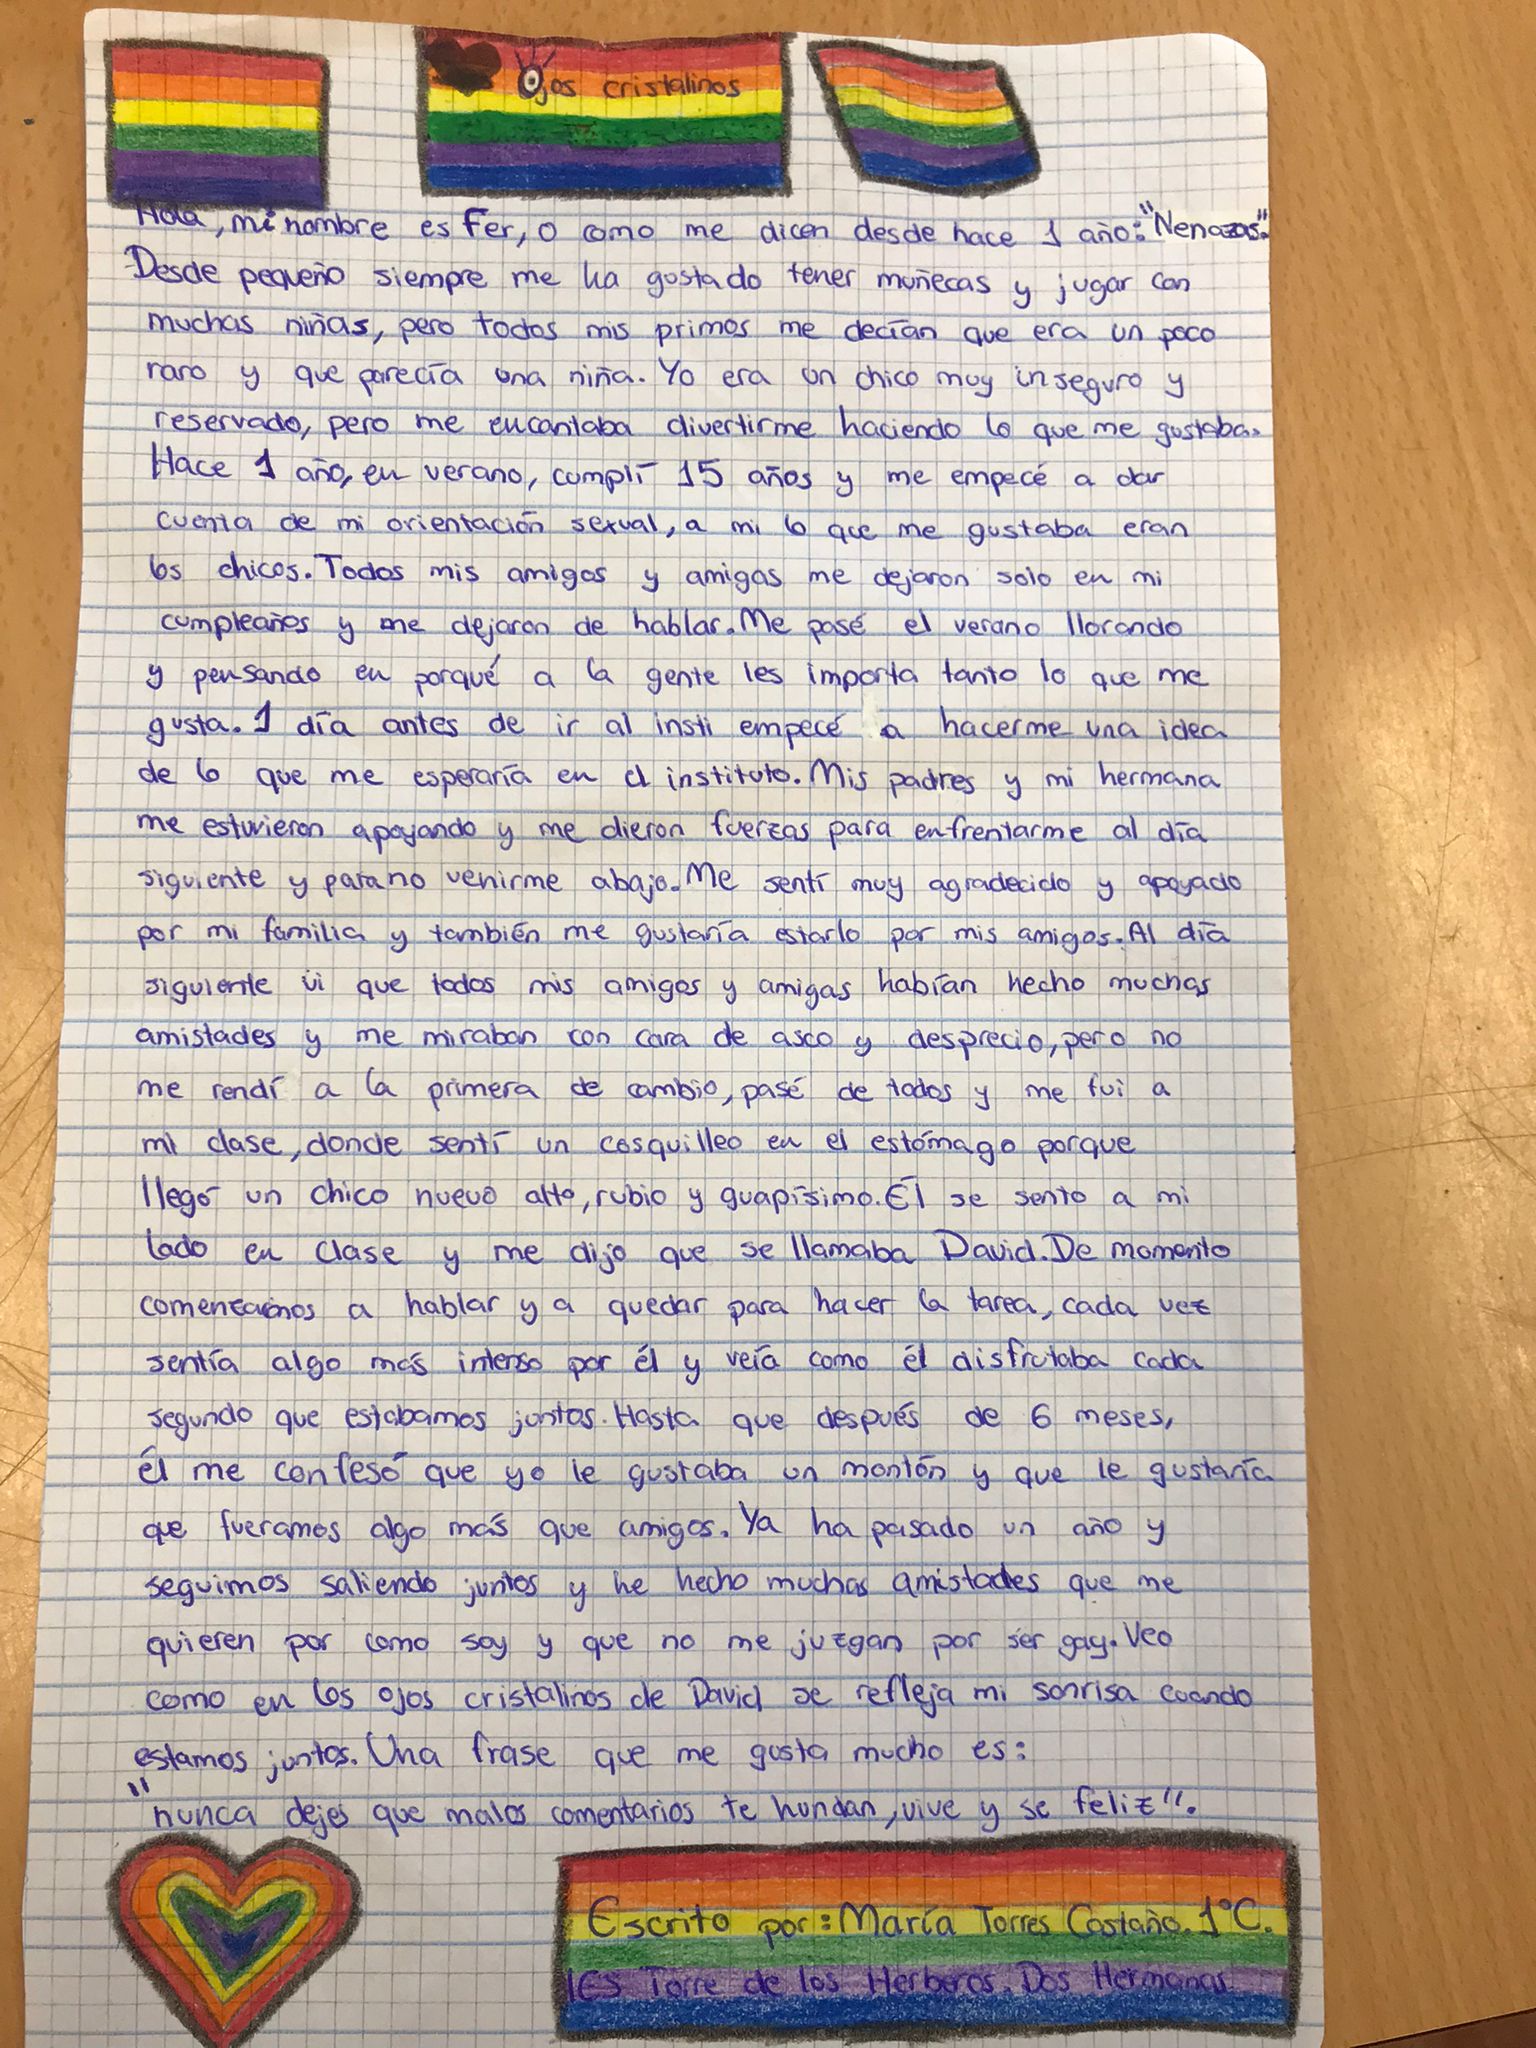 Ojos cristalinos
Hola, mi nombre es Fer, o como me dicen desde hace 1 año: "Nenazas".
Desde pequeño siempre me ha gustado tener muñecas y jugar con
muchas niñas, pero todos mis primos me decían que era un poco
raro y que parecía una niña. Yo era un chico muy inseguro y
reservado, pero me encantaba divertirme haciendo lo que me gustaba.
Hace 1 año, en verano, cumplí 15 años y me empecé a dar
cuenta de mi orientación sexual, a mi lo que me gustaba eran
los chicos. Todos mis amigos y amigas me dejaron solo en mi
cumpleaños y me dejaron de hablar. Me pasé el verano llorando
y pensando en porqué a la gente les importa tanto lo que me
gusta. 1 día antes de ir al insti empecé a hacerme una idea
de lo que me esperaría en el instituto. Mis padres y mi hermana
me estuvieron apoyando y me dieron fuerzas para enfrentarme al día
siguiente y para no venirme abajo. Me sentí muy agradecido y apoyado
por mi familia y también me gustaría estarlo por mis amigos. Al día
siguiente vi que todos mis amigos y amigas habían hecho muchas
amistades y me miraban con cara de asco y desprecio, pero no
me rendí a la primera de cambio, pasé de todos y me fui a
mi clase, donde sentí un cosquilleo en el estómago porque
llegó un chico nuevo alto, rubio y guapísimo. Él se sento a mi
lado en clase y me dijo que se llamaba David. De momento
comenzamos a hablar y a quedar para hacer la tarea, cada vez
sentía algo más intenso por él y veía como él disfrutaba cada
segundo que estabamos juntos. Hasta que después de 6 meses,
él me confesó que yo le gustaba un montón y que le gustaría
que fueramos algo más que amigos. Ya ha pasado un año y
seguimos saliendo juntos y he hecho muchas amistades que me
quieren por como soy y que no me juzgan por ser gay. Veo
como en los ojos cristalinos de David se refleja mi sonrisa cuando
estamos juntos. Una frase que me gusta mucho es:
"nunca dejes que malos comentarios te hundan, vive y se feliz".
Escrito por: María Torres Castaño. 1ºC.
IES Torre de los Herberos. Dos Hermanas.